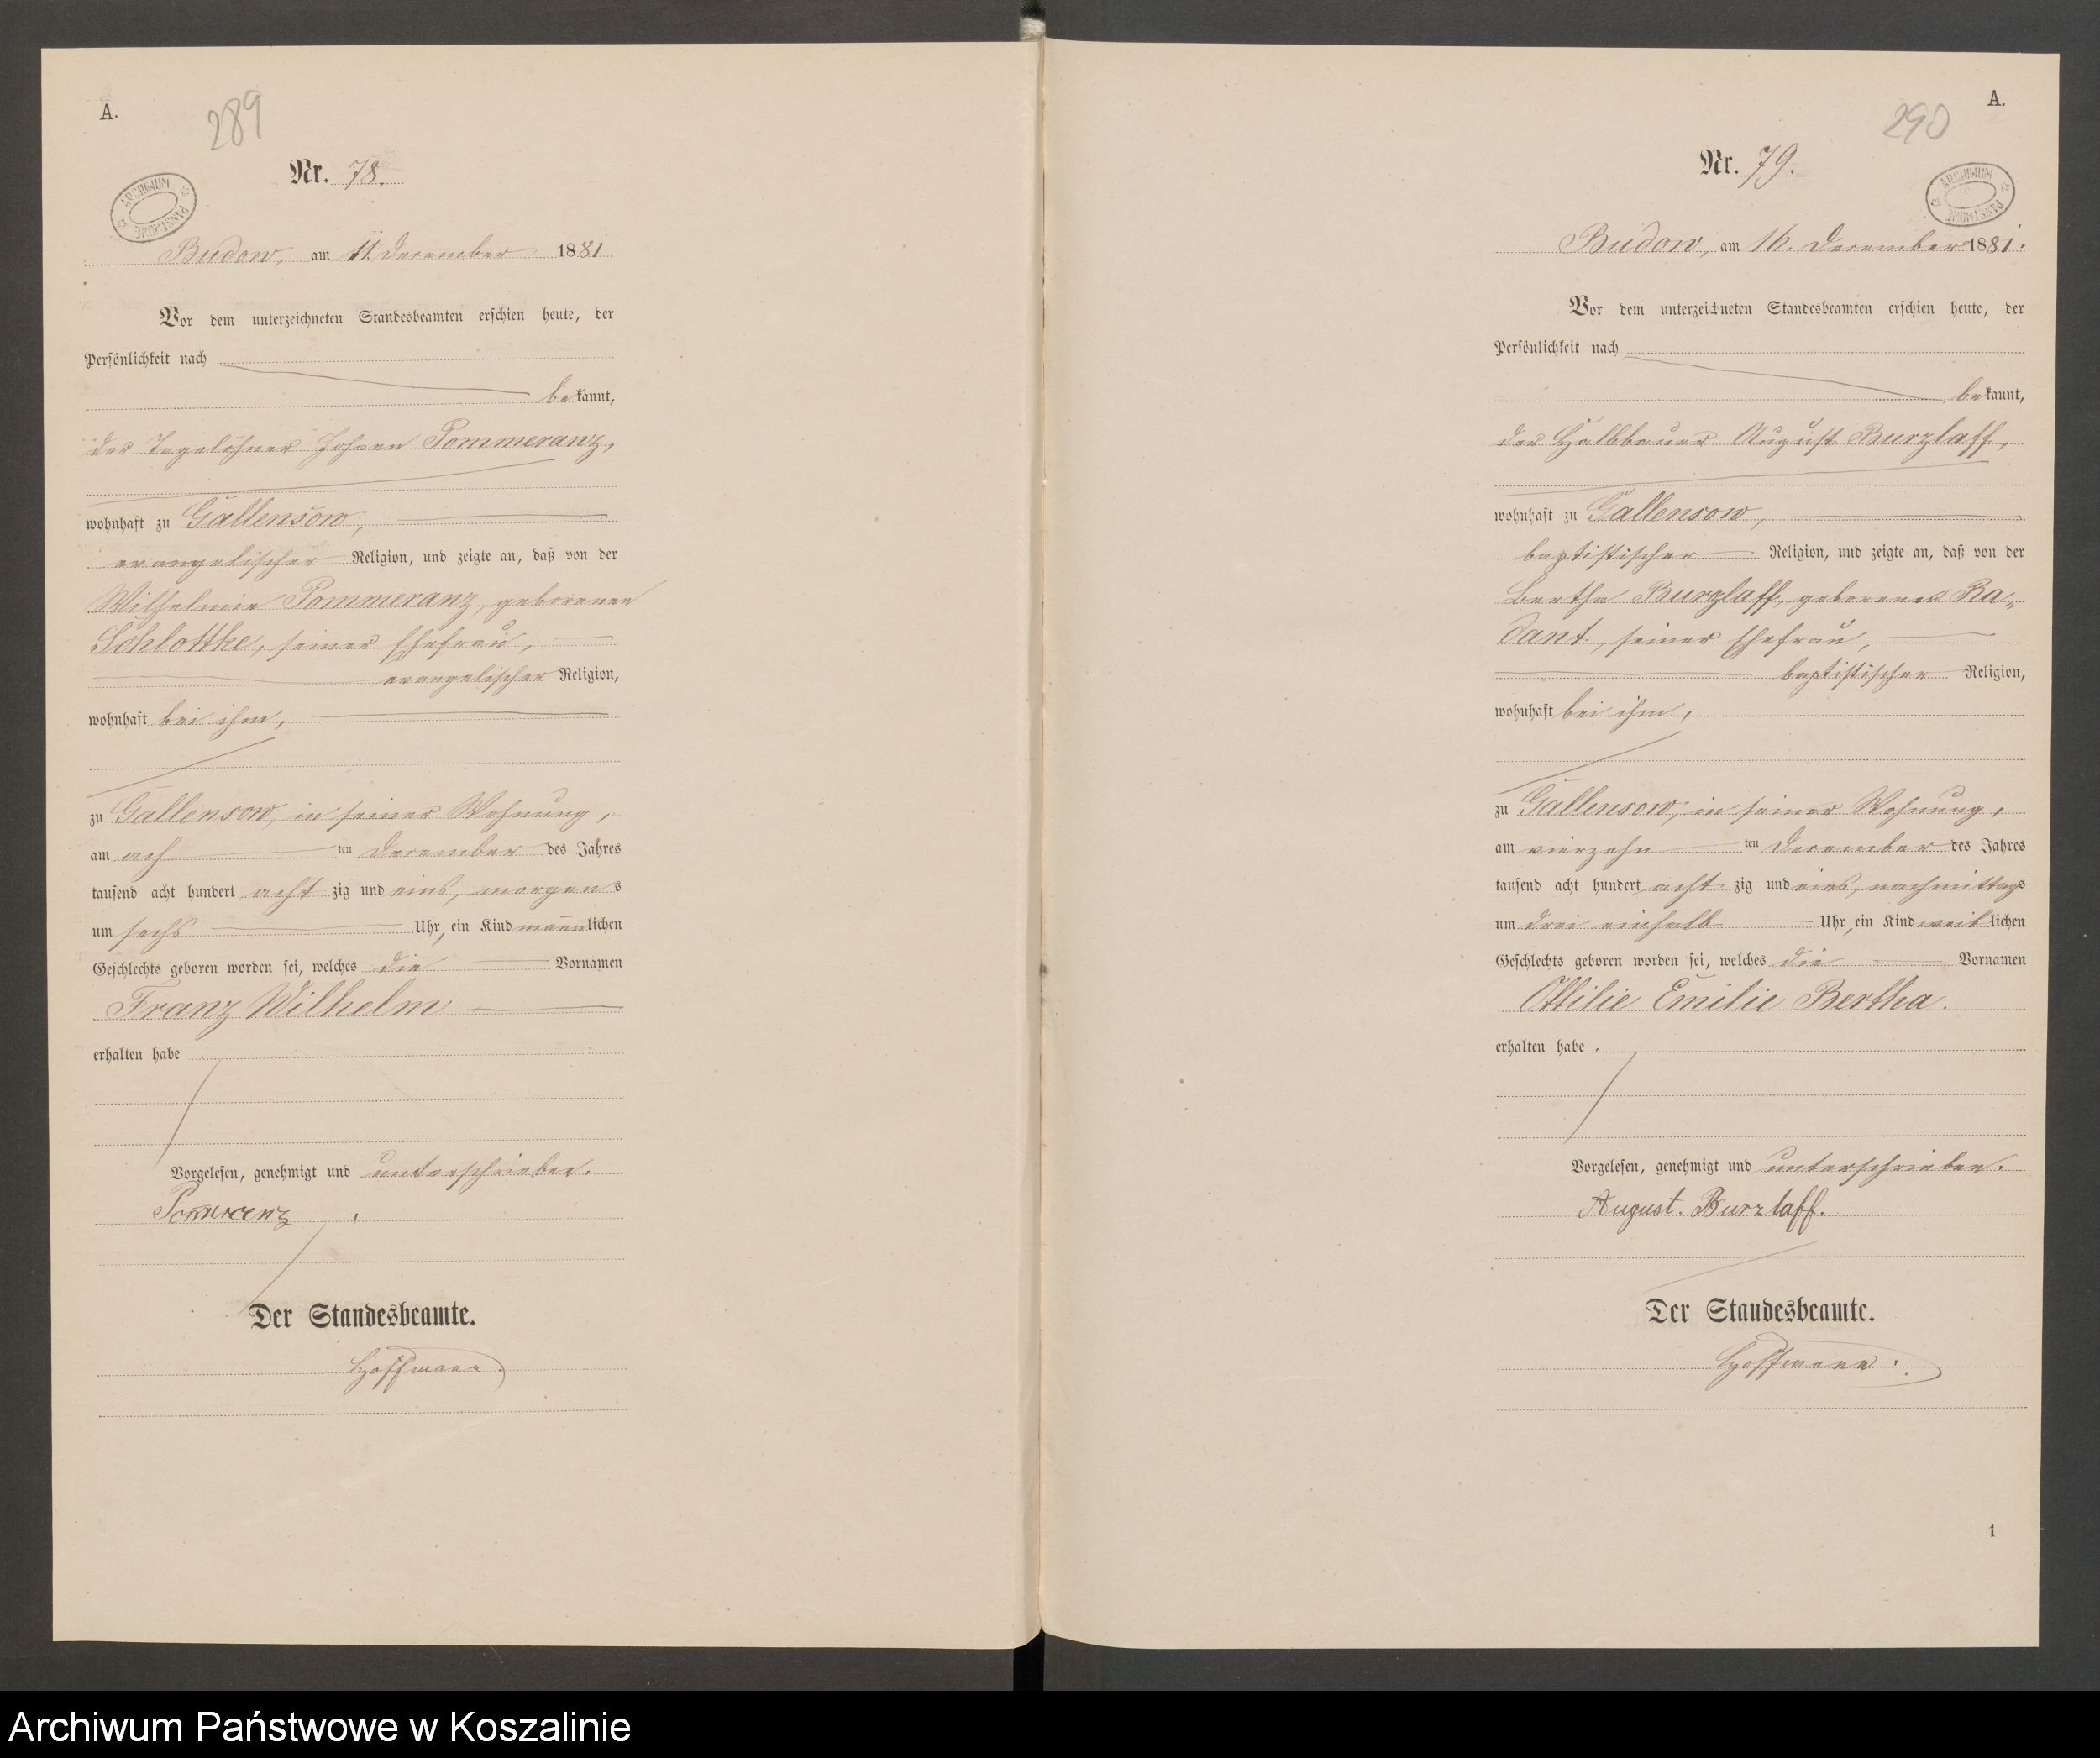 A.
289
Nr. 78.
ARCHIWUM PAŃSTWOWE
Budow, am 11 December 1881
Vor dem unterzeichneten Standesbeamten erschien heute, der
Persönlichkeit nach
bekannt,
der Tagelöhner Johann Pommeranz,
wohnhaft zu Gallensow,
evangelischer Religion, und zeigte an, daß von der
Wilhelmine Pommeranz, geborenen
Schlottke, seiner Ehefrau,
evangelischer Religion,
wohnhaft bei ihm,
zu Gallensow, in seiner Wohnung,
am ach ten December des Jahres
tausend acht hundert acht zig und eins, morgens
um sechs Uhr, ein Kind männlichen
Geschlechts geboren worden sei, welches die Vornamen
Franz Wilhelm
erhalten habe
Vorgelesen, genehmigt und unterschrieben.
Der Standesbeamte.
Hoffmann
A.
290
Nr. 79.
ARCHIWUM PAŃSTWOWE
Budow, am 16. December 1881.
Vor dem unterzeichneten Standesbeamten erschien heute, der
Persönlichkeit nach
bekannt,
der Halbbauer August Burzlaff,
wohnhaft zu Gallensow,
baptistischer Religion, und zeigte an, daß von der
Bertha Burzlaff, geborener Ra-
dant, seiner Ehefrau,
baptistischer Religion,
wohnhaft bei ihm,
zu Gallensow, in seiner Wohnung,
am vierzehn ten December des Jahres
tausend acht hundert acht zig und eins, nachmittags
um drei einhalb Uhr, ein Kind weiblichen
Geschlechts geboren worden sei, welches die Vornamen
Ottilie Emilie Bertha.
erhalten habe.
Vorgelesen, genehmigt und unterschrieben.
August. Burzlaff.
Der Standesbeamte.
Hoffmann.
1
Archiwum Państwowe w Koszalinie